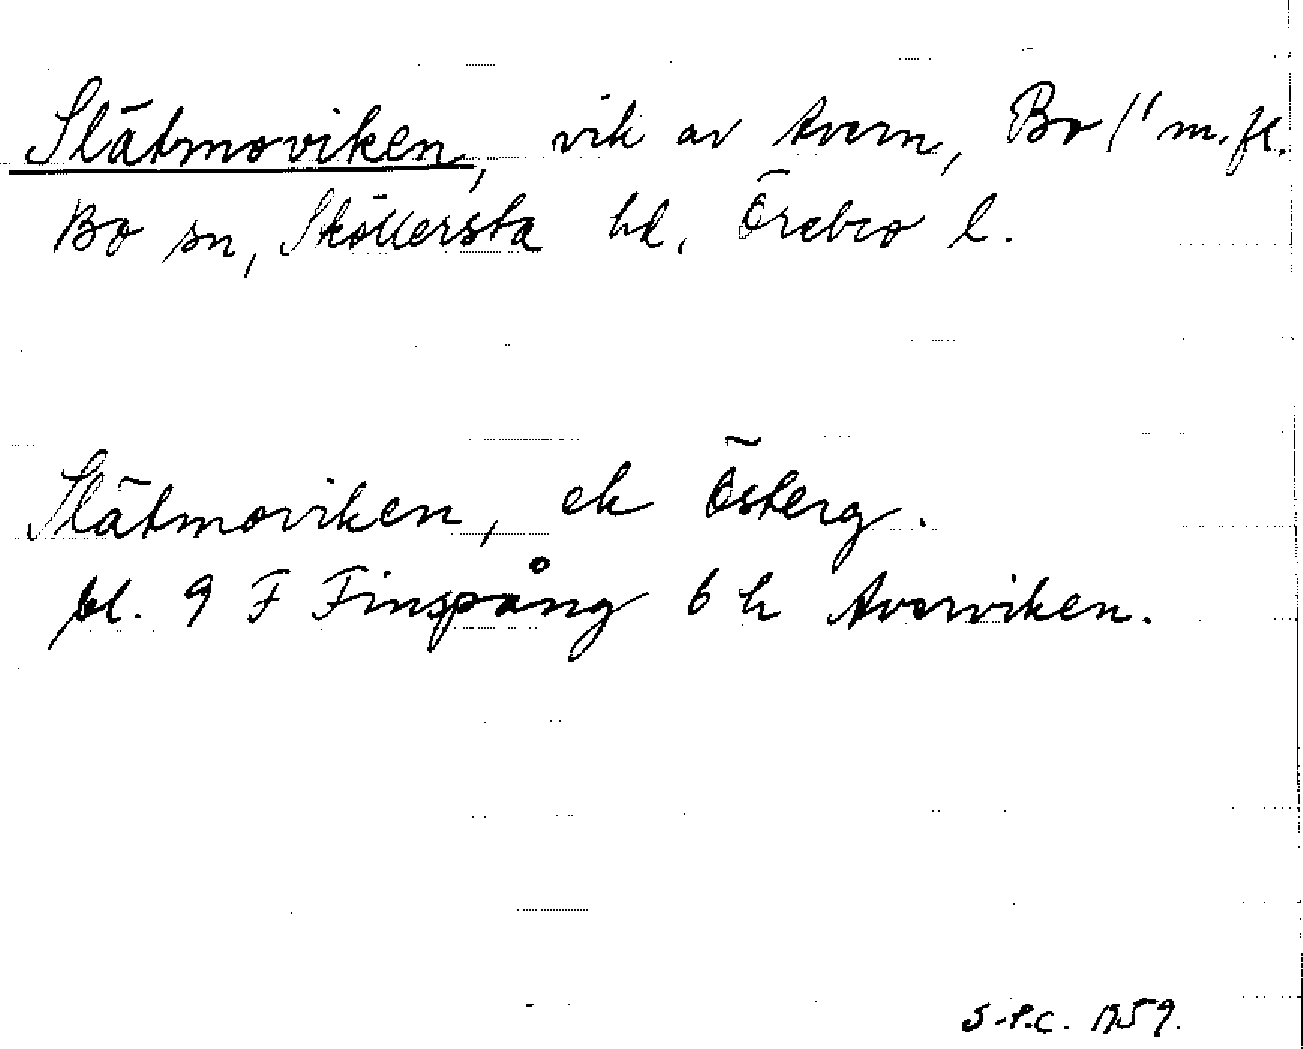 Slätmoviken, vik av Avern, Bo 1/1 m.fl.
Bo sn, Sköllersta hd, Örebro l.
Slätmoviken, ek Österg.
bl. 9 F Finspång 6 h Averviken.
S-P.C. 1959.